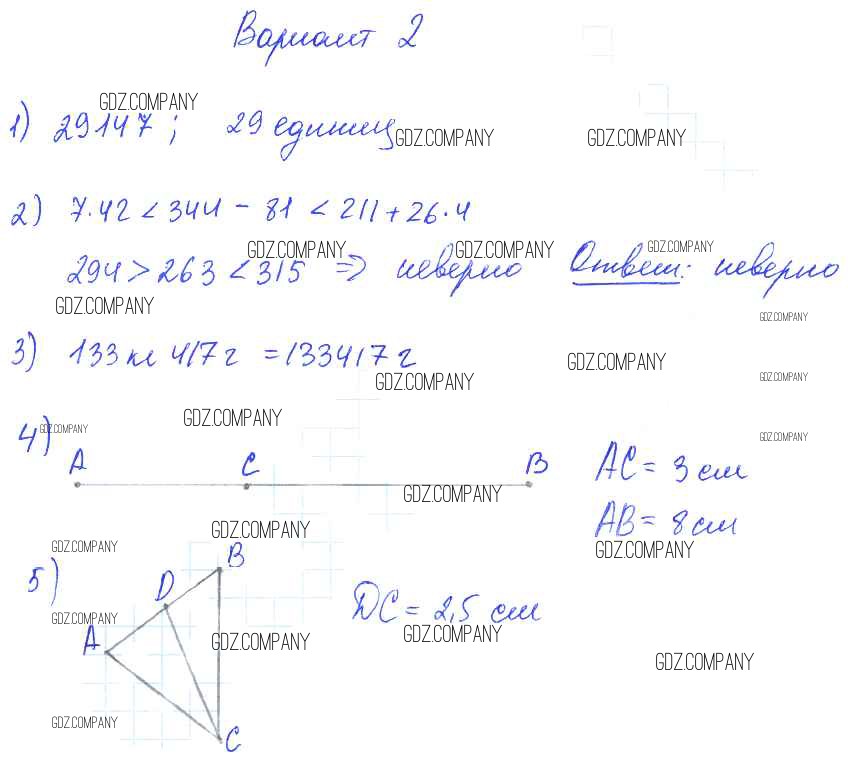 Вариант 2
GDZ.COMPANY
1) 29147; 29 единиц
GDZ.COMPANY GDZ.COMPANY
2) 7·42 < 344 - 81 < 211 + 26·4
GDZ.COMPANY GDZ.COMPANY GDZ.COMPANY
294 > 263 < 315 => неверно Ответ: неверно
GDZ.COMPANY
GDZ.COMPANY
3) 133 кг 417 г = 133417 г
GDZ.COMPANY
GDZ.COMPANY GDZ.COMPANY
GDZ.COMPANY
4) GDZ.COMPANY
GDZ.COMPANY
A C B AC = 3 см
GDZ.COMPANY
AB = 8 см
GDZ.COMPANY
GDZ.COMPANY GDZ.COMPANY
5) B
D DC = 2,5 см
GDZ.COMPANY
A GDZ.COMPANY GDZ.COMPANY
GDZ.COMPANY
GDZ.COMPANY
C